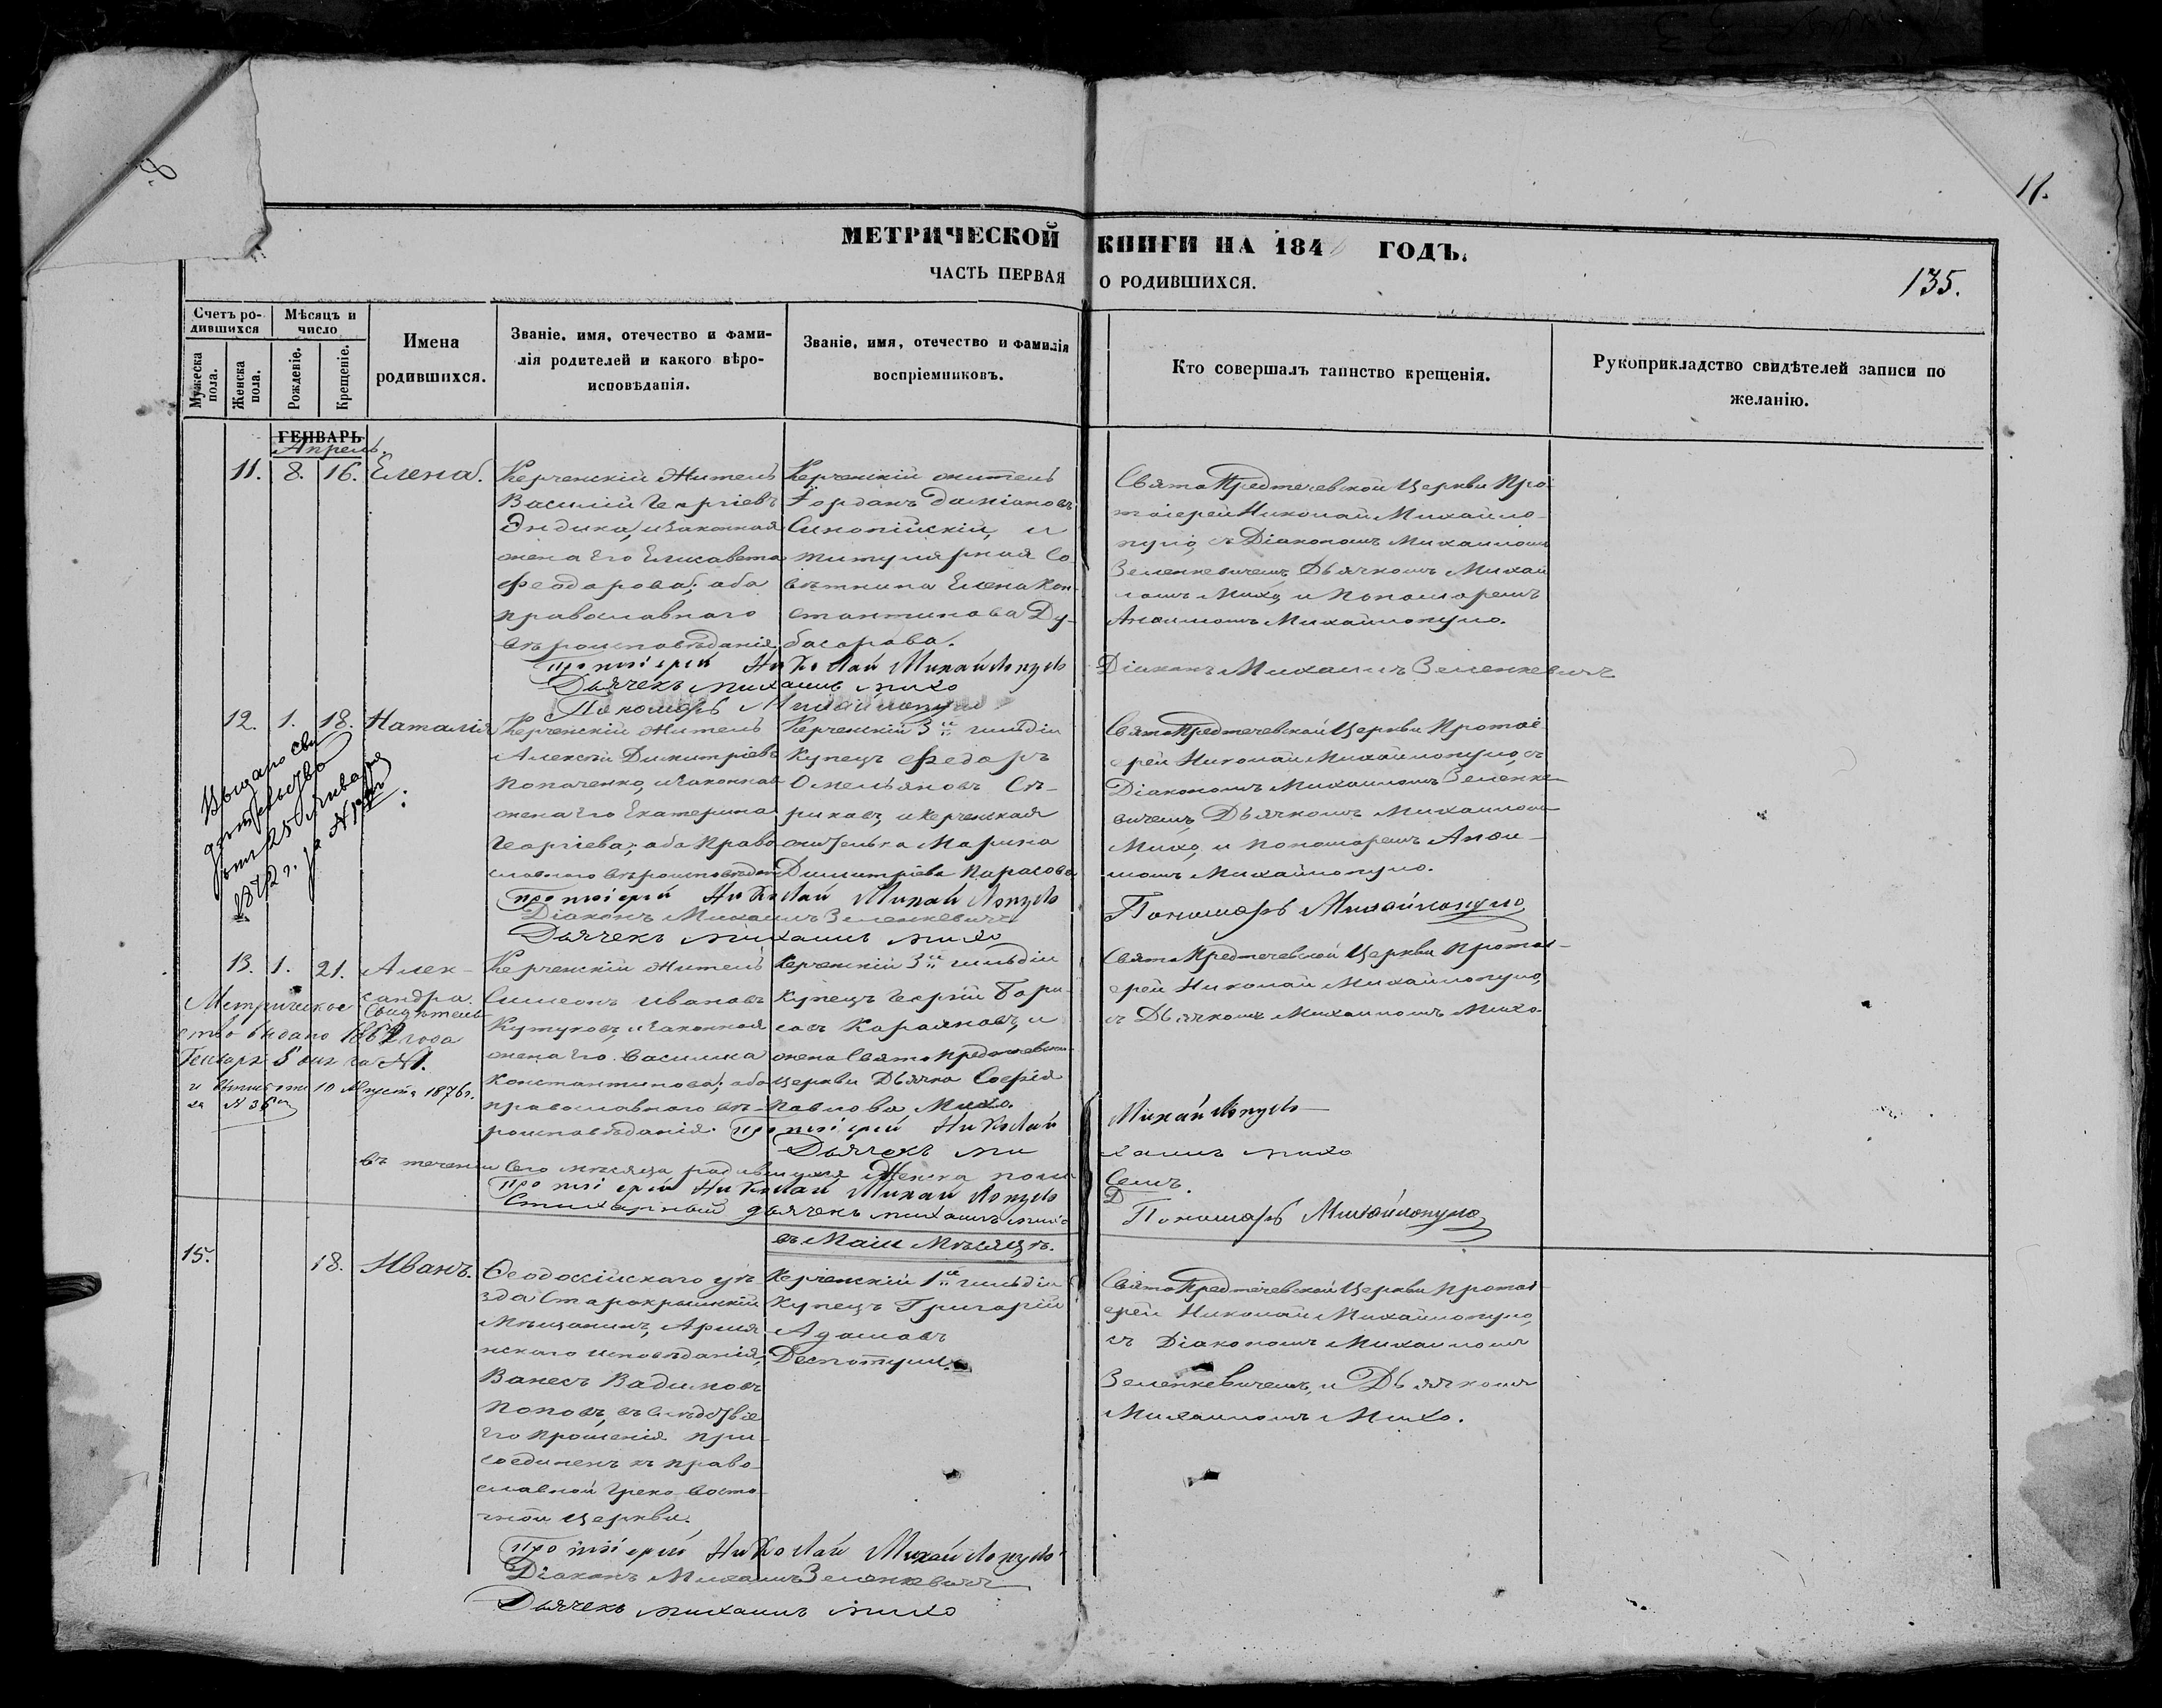 11.
МЕТРИЧЕСКОЙ КНИГИ НА 184 ГОДЪ.
ЧАСТЬ ПЕРВАЯ О РОДИВШИХСЯ.
135.
Счетъ ро-
дившихся
Мѣсяцъ и
число
Мужеска
пола.
Женска
пола.
Рожденіе.
Крещеніе.
Имена
родившихся.
Званіе, имя, отечество и фами-
лія родителей и какого вѣро-
исповѣданія.
Званіе, имя, отечество и фамилія
воспріемниковъ.
Кто совершалъ таинство крещенія.
Рукоприкладство свидѣтелей записи по
желанію.
ГЕНВАРЬ
Апрель.
11. 8. 16. Елена.
Керченскій Житель
Василій Георгіевъ
и законная
жена его Елисавета
Феодорова, оба
православнаго
вѣроисповѣданія.
Керченскій житель
Іорданъ Даміановъ
Синопійскій, и
титулярная Со-
вѣтница Елена Кон-
стантинова Ду-
басарова.
Свято Предтечевской Церкви Про-
тоіерей Николай Михайло-
пуло, съ Діакономъ Михаиломъ
Зеленкевичемъ, Дьячкомъ Михаи-
ломъ Михо, и Пономаремъ
Михайлопуло.
Протоіерей Николай Михайлопуло
Діаконъ Михаилъ Зеленкевичъ
Дьячекъ Михаилъ Михо
Пономарь Михайлопуло
12. 1. 18. Наталія
Керченскій Житель
Алексѣй Димитріевъ
Попаченко, и законная
жена его Екатерина
Георгіева, оба Право-
славнаго вѣроисповѣдан
Керченскій 3й гильдіи
Купецъ Федоръ
Омельяновъ Сѣ-
риковъ, и Керченская
жителька Марина
Димитріева Парасова
Свято Предтечевской Церкви Протоі-
ерей Николай Михайлопуло, съ
Діакономъ Михаиломъ Зеленке-
вичемъ, Дьячкомъ Михаиломъ
Михо, и Пономаремъ
Михайлопуло.
Выдано сви
дѣтельство
отъ 25 Января
1872 г. за №
Протоіерей Николай Михайлопуло
Діаконъ Михаилъ Зеленкевичъ
Дьячекъ Михаилъ Михо
Пономарь Михайлопуло
13. 1. 21. Алек-
сандра.
Керченскій Житель
Симеонъ Ивановъ
Кутузовъ, и законная
жена его Василика
Константинова, оба
православнаго вѣ-
роисповѣданія.
Керченскій 3й гильдіи
Купецъ Георгій Бори-
совъ Караяновъ, и
жена Свято Предтечевской
церкви Дьячка Софія
Павлова Михо.
Свято Предтечевской Церкви Протоі-
ерей Николай Михайлопуло,
съ Дьячкомъ Михаиломъ Михо.
Метрическое
Свидѣтель
ство выдано 1862 года
Генваря 8 дня за № 1.
и выпись отъ 10 Августа 1876 г.
за № 36
Протоіерей Николай Михайлопуло
Дьячекъ Михаилъ Михо
въ теченіи Сего мѣсяца родившихся Женска пола Семь.
Протоіерей Николай Михайлопуло
Д
Стихарный дьячекъ Михаилъ Михо
Пономарь Михайлопуло
въ Маіи Мѣсяцѣ.
15. 18. Иванъ.
Ѳеодосійскаго уѣ-
зда Старокрымскій
Мѣщанинъ, Армя-
нскаго исповѣданія,
Ванесъ Вадимовъ
Поповъ, въ слѣдствіе
его прошенія при-
соединенъ къ право-
славной Греко восто-
чной Церкви.
Керченскій 1й гильдіи
Купецъ Григорій
Адамовъ
Деспотули.
Свято Предтечевской Церкви Протоі-
ерей Николай Михайлопуло,
съ Діакономъ Михаиломъ
Зеленкевичемъ, и Дьячкомъ
Михаиломъ Михо.
Протоіерей Николай Михайлопуло
Діаконъ Михаилъ Зеленкевичъ
Дьячекъ Михаилъ Михо